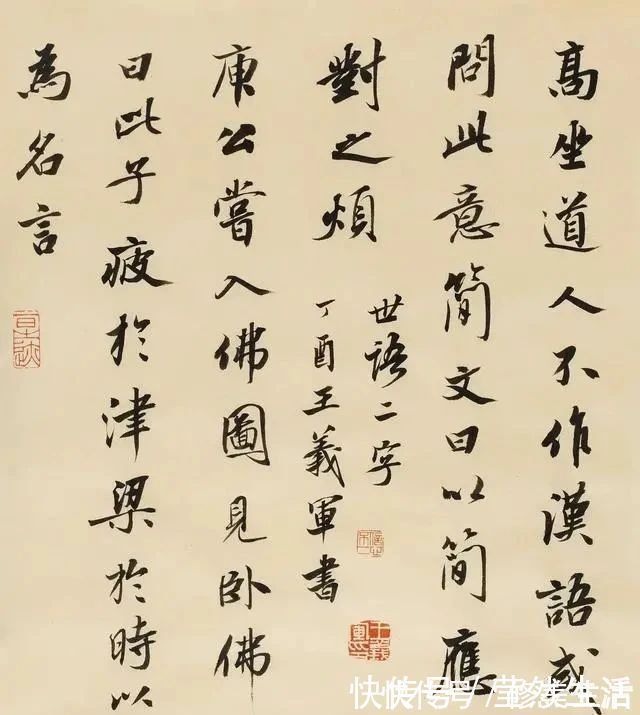 高坐道人不作漢語或
問此意簡文曰以簡應
對之煩
世語二字
丁酉王義軍書
庾公嘗入佛圖見卧佛
曰此子疲於津梁於時以
為名言